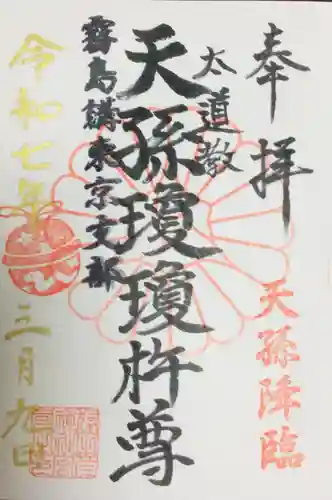 奉拝
天孫降臨
太道教
天孫瓊瓊杵尊
霧島講東京支部
令和七年
三月九日